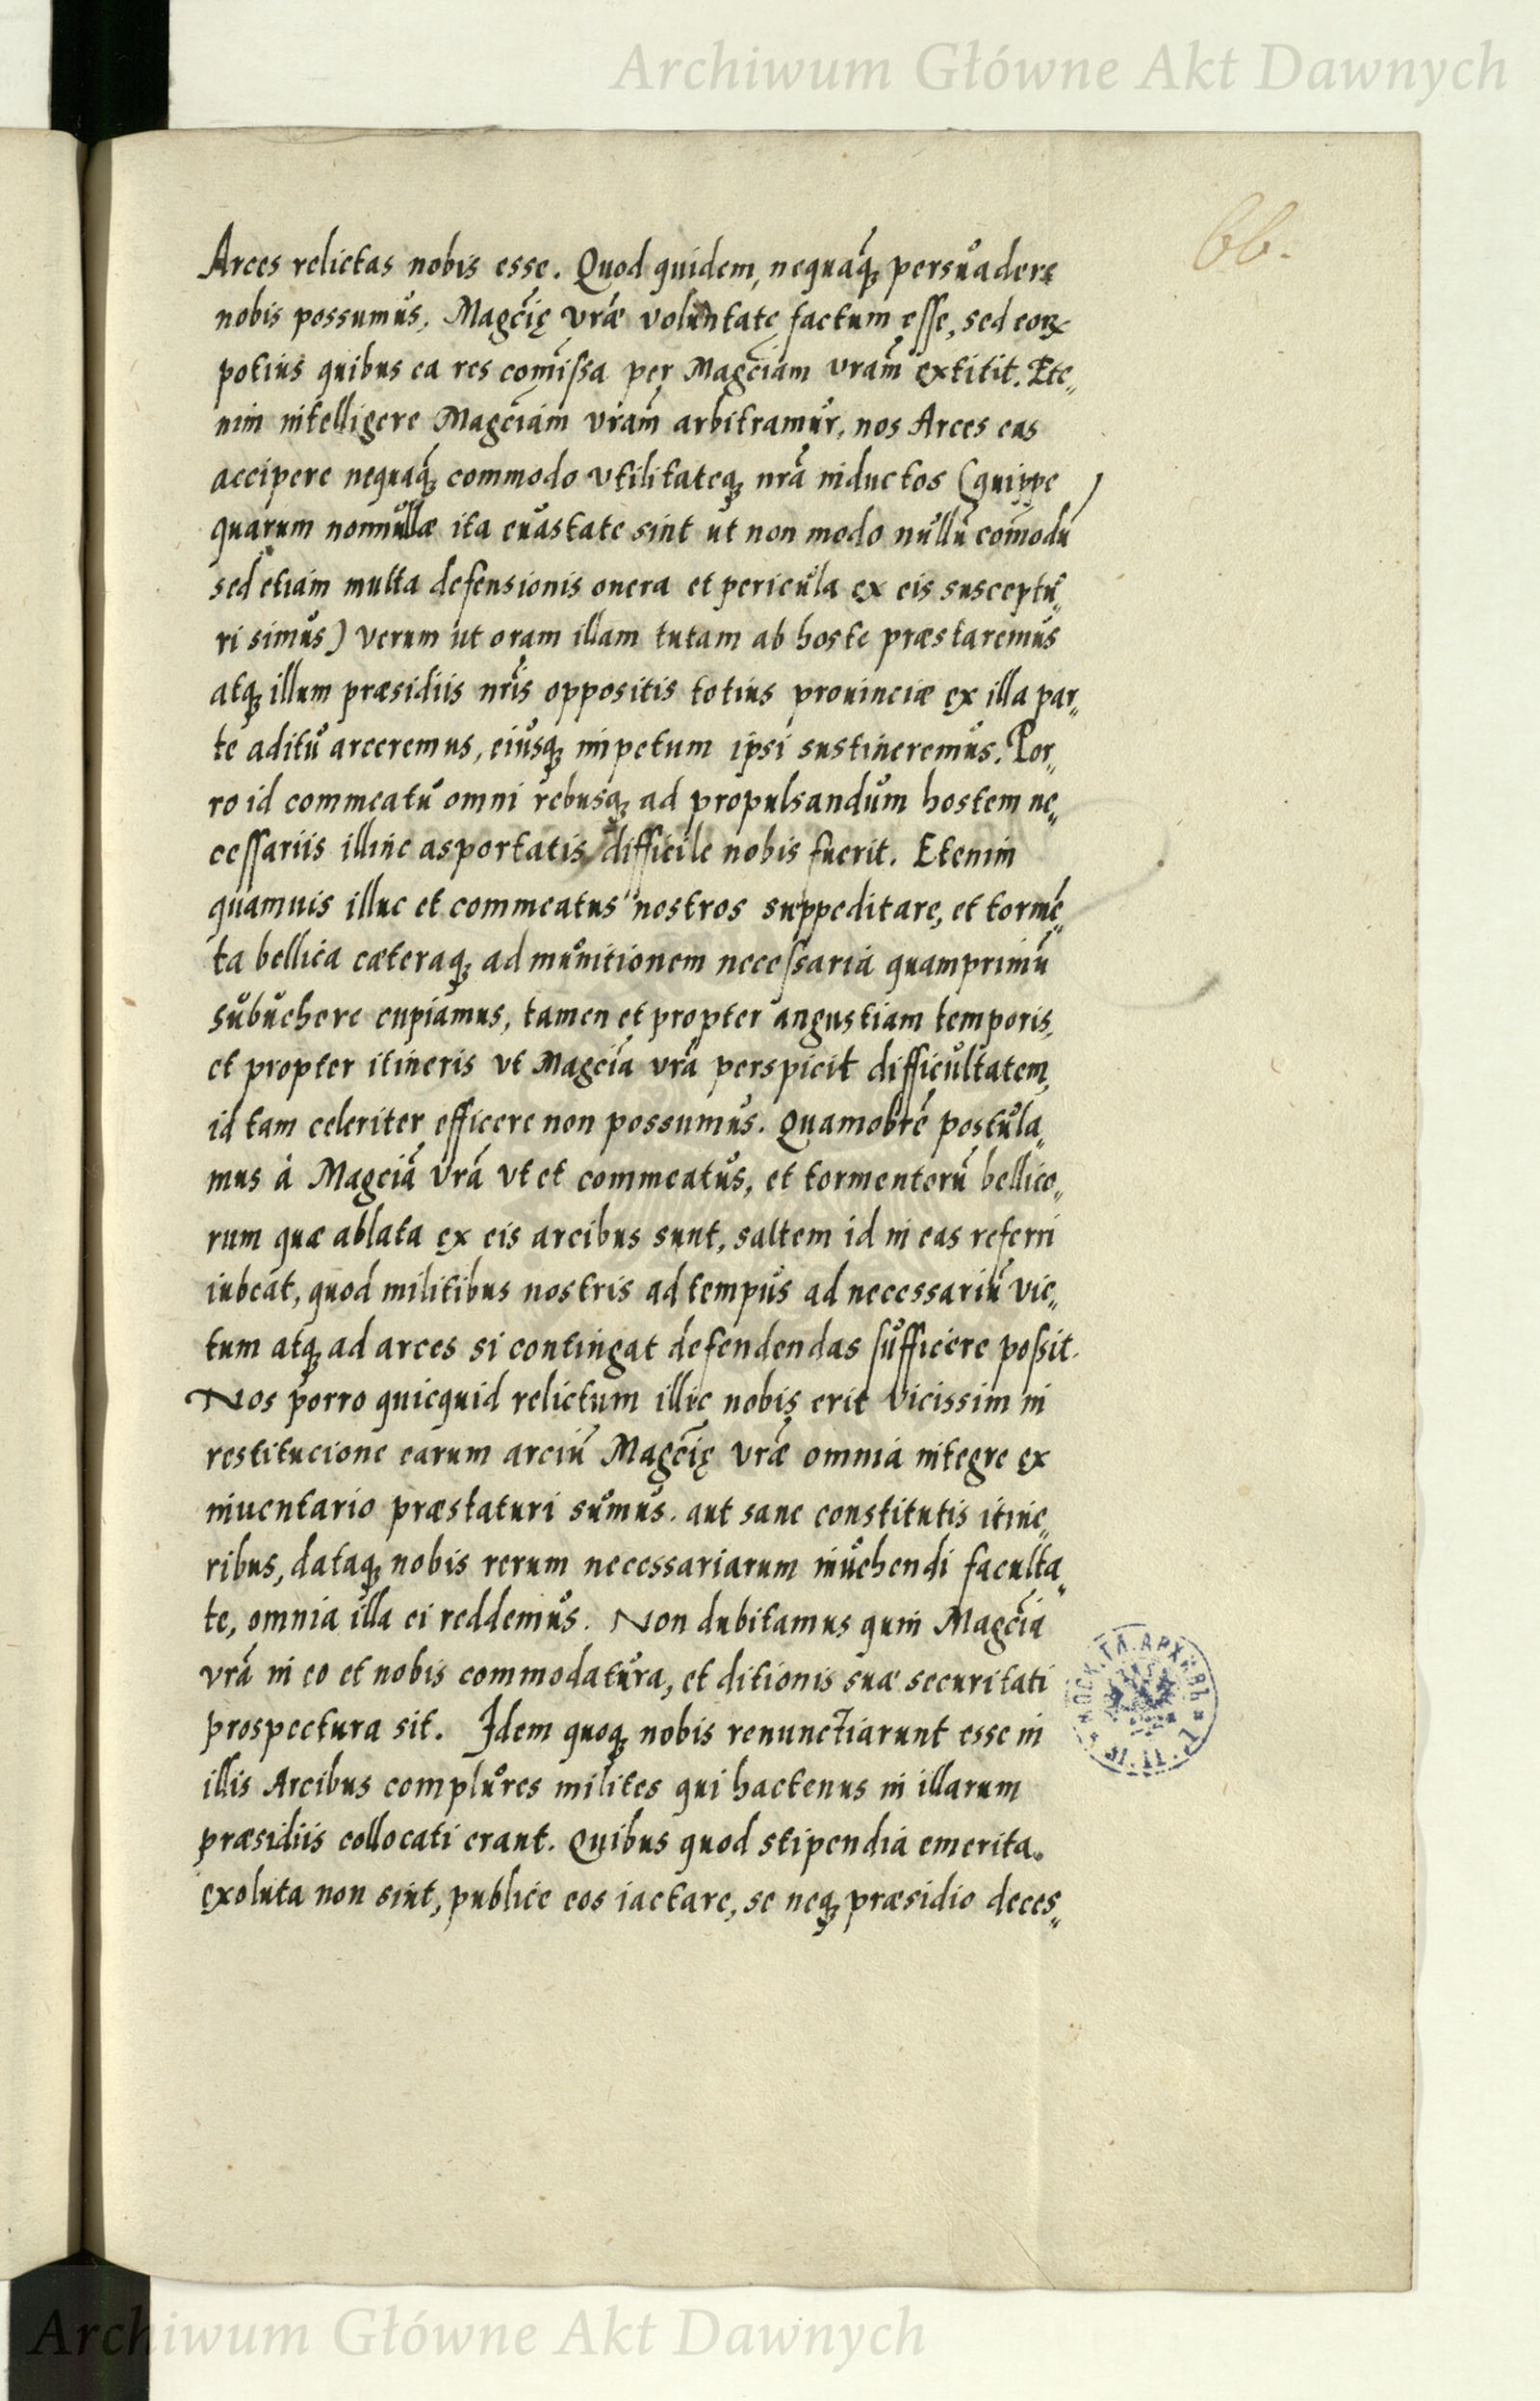 Archiwum Główne Akt Dawnych
66.
Arces relictas nobis esse. Quod quidem, nequaq̃ persuadere
nobis possumus, Magc̃ię vræ̃ voluntatę factum esse, sed eoꝝ
potius quibus ea res com̃issa per Magc̃iam vram̃ extitit. Ete„
nim intelligere Magc̃iam vram̃ arbitramur, nos Arces eas
accipere nequaq̃ commodo vtilitateq; nrã inductos (quippe
quarum nonnullæ ita euastate sint ut non modo nullũ com̃odũ
sed etiam multa defensionis onera et pericula ex eis susceptu„
ri simus) verum ut oram illam tutam ab hoste præstaremus
atq; illum præsidiis nr̃is oppositis totius prouinciæ ex illa par„
te aditũ arceremus, eiusq; impetum ipsi sustineremus. Por„
ro id commeatu omni rebusq; ad propulsandum hostem ne„
cessariis illinc asportatis difficile nobis fuerit. Etenim
quamuis illuc et commeatus nostros suppeditare, et tormẽ„
ta bellica cæteraq; ad munitionem necessaria quamprimũ
subuehere cupiamus, tamen et propter angustiam temporis,
et propter itineris vt Magc̃ia vrã perspicit difficultatem,
id tam celeriter efficere non possumus. Quamobrẽ postula„
mus à Magciã vrã vt et commeatus, et tormentorũ bellico„
rum quæ ablata ex eis arcibus sunt, saltem id in eas referri
iubeat, quod militibus nostris ad tempus ad necessariũ vic„
tum atq; ad arces si contingat defendendas sufficere possit.
Nos porro quicquid relictum illic nobis erit vicissim in
restitucione earum arciũ Magc̃ię vræ̃ omnia integre ex
inuentario præstaturi sumus. aut sane constitutis itine„
ribus, dataq; nobis rerum necessariarum inuehendi faculta„
te, omnia illa ei reddemus. Non dubitamus quin Magc̃ia
vrã in eo et nobis commodatura, et ditionis suæ securitati
prospectura sit. Idem quoq; nobis renunctiarunt esse in
illis Arcibus complures milites qui hactenus in illarum
præsidiis collocati erant. Quibus quod stipendia emerita
exoluta non sint, publice eos iactare, se neq; præsidio deces„
Archiwum Główne Akt Dawnych